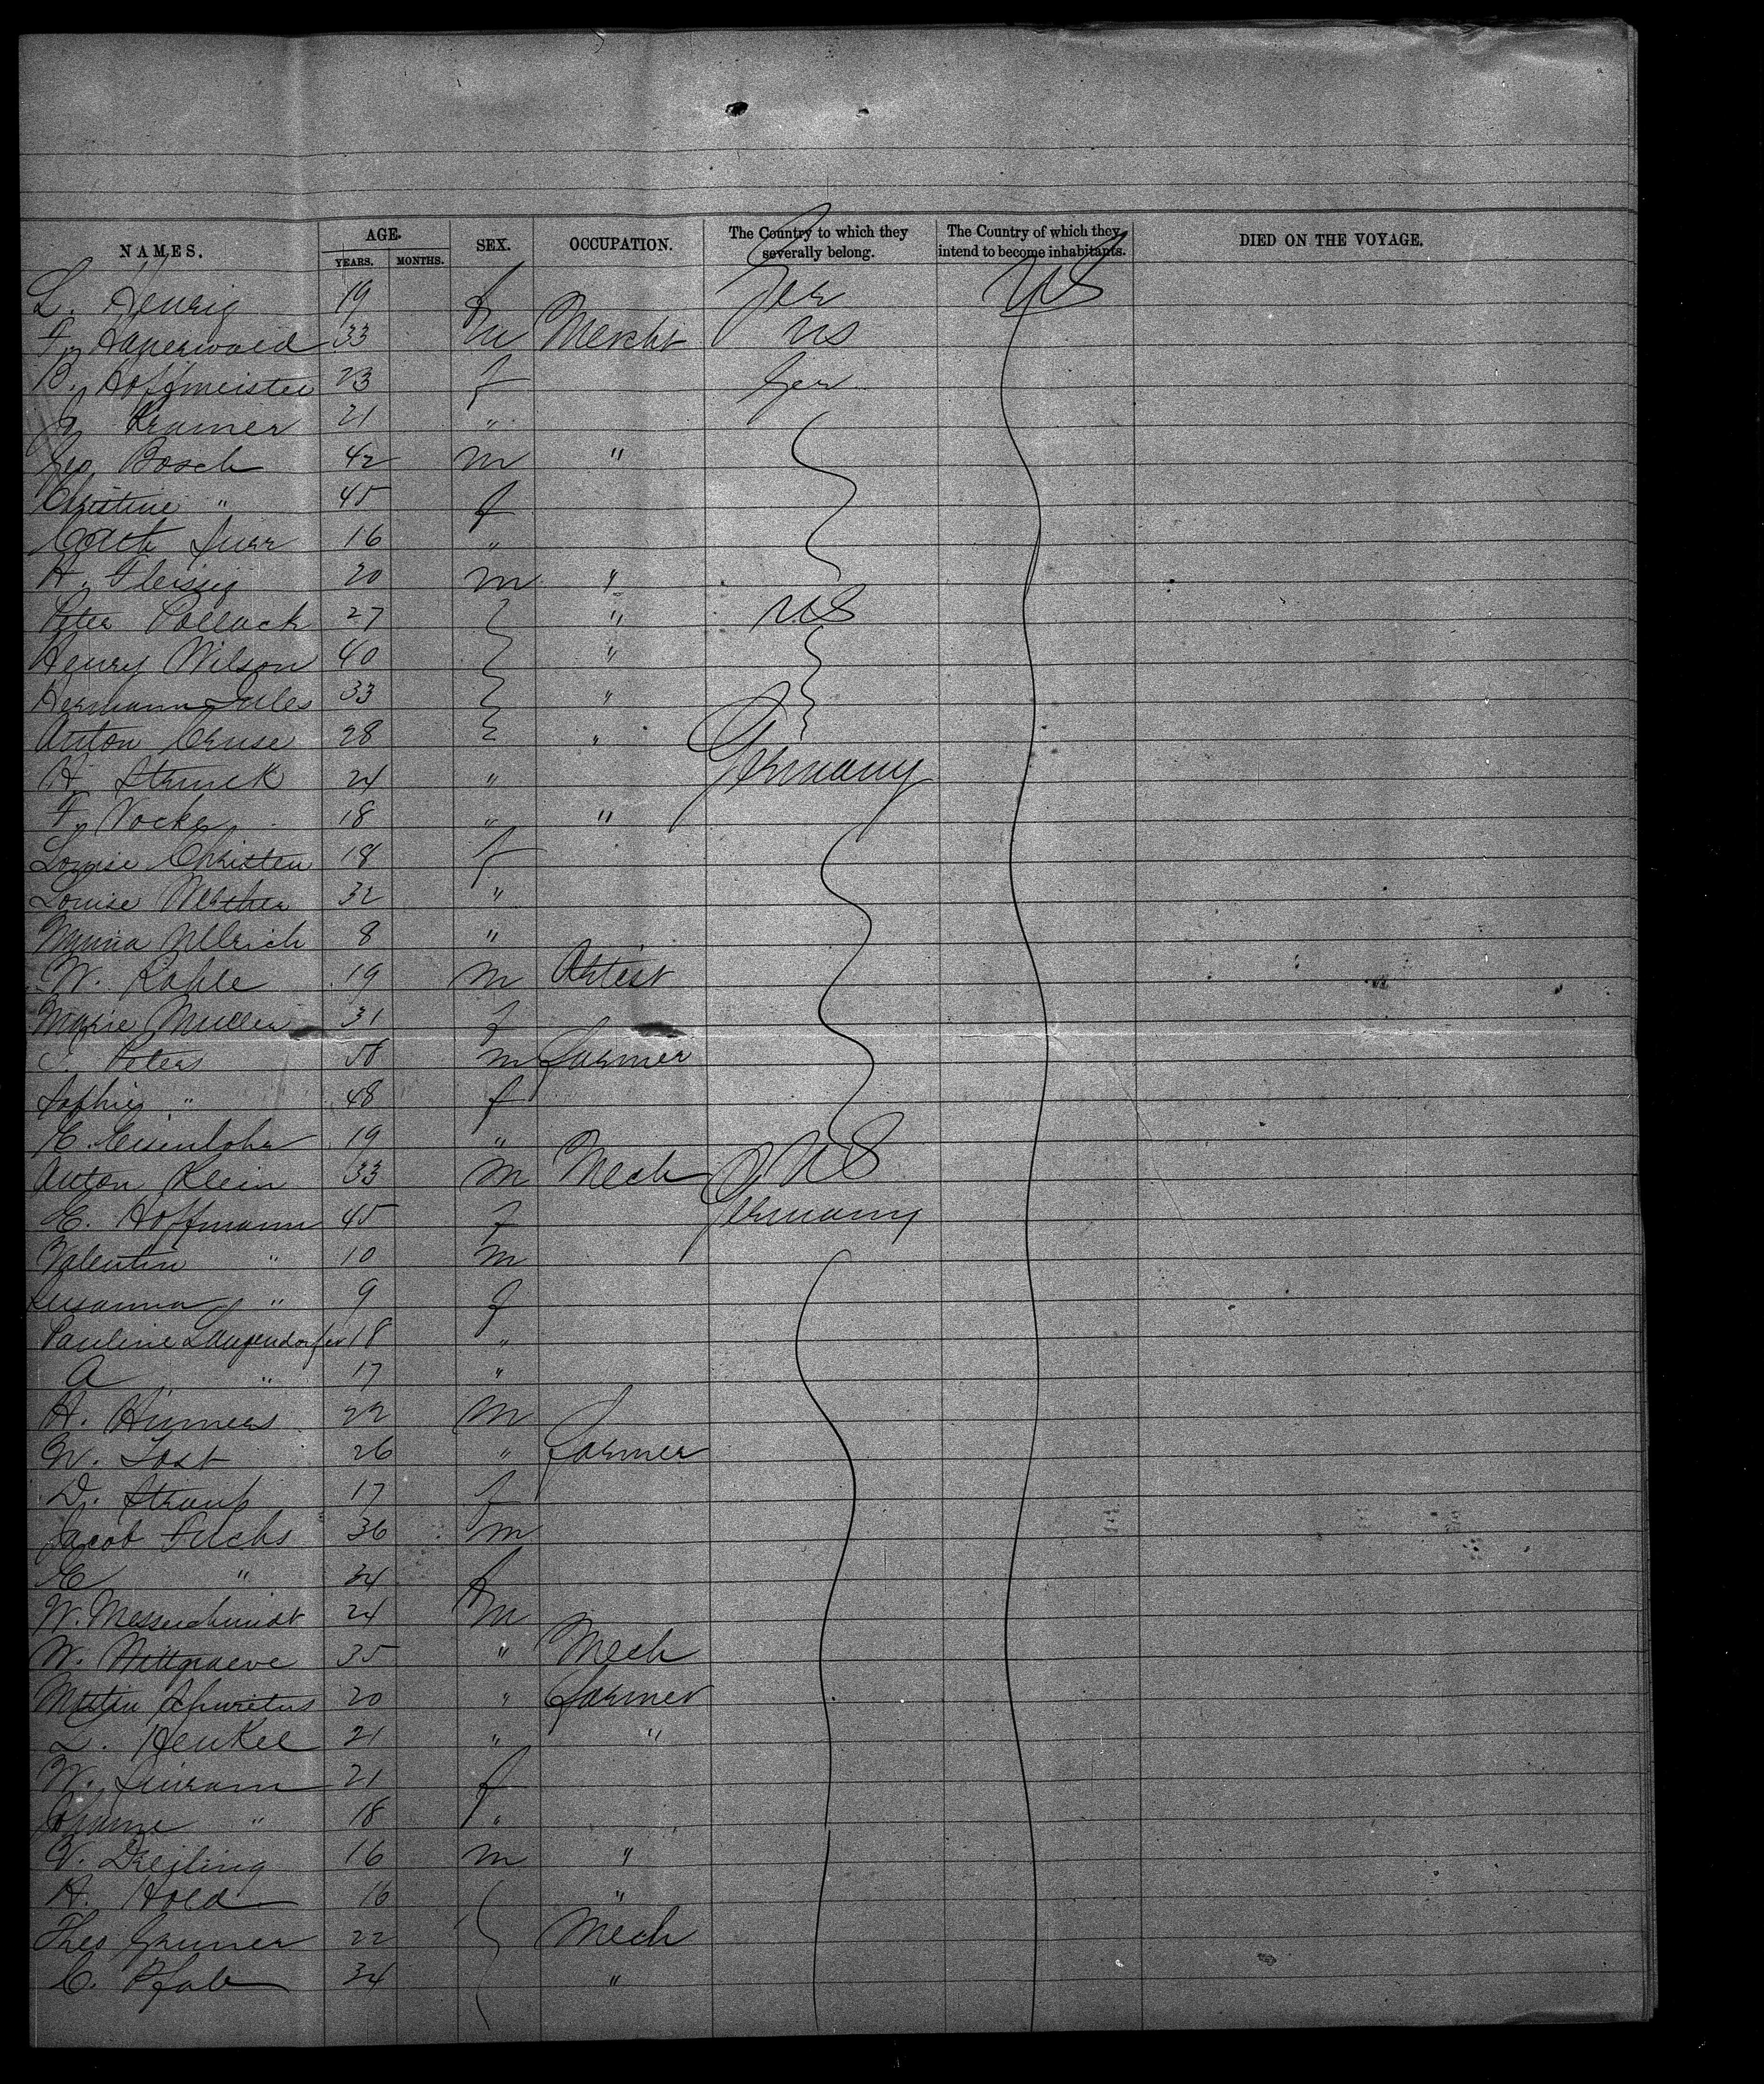 NAMES. AGE. SEX. OCCUPATION. The Country to which they severally belong. The Country of which they intend to become inhabitants. DIED ON THE VOYAGE.
YEARS. MONTHS.
L. Henrig 19 f Ger US
F. 33 m Mercht US
B. Hoffmeister 23 f Ger
Kramer 21 "
Geo Bosch 42 m "
Christine " 45 f
16 "
H. Fleisig 20 m "
Peter Pollack 27 " US
Henry Wilson 40 "
Hermann 33 "
Anton Cruse 28 "
H. Strunk 24 " Germany
F. Vocke 18 " "
Louise Christen 18 f
Louise Werther 32 "
Minna Ullrich 8 "
W. Kahle 19 m Artist
Marie Muller 31 f
C. Peters 58 m farmer
Sophie " 48 f
E. Eisenlohr 19 "
Anton Klein 33 m Mech US
E. Hoffmann 45 f Germany
Valentin " 10 m
Susanna " 9 f
Pauline Langendorfer 18 "
A " 17 "
H. Humers 22 m
W. Jost 26 " farmer
D. Straub 17 f
Jacob Fuchs 36 m
E " 34 f
W. Messerschmidt 24 m
W. Wittgraeve 35 " Mech
20 " farmer
L. Henkel 21 " "
W. 21 f
" 18 "
V. Dreiling 16 m "
H. Hold 16 "
Theo Gruner 22 Mech
C. Pfab 34 "